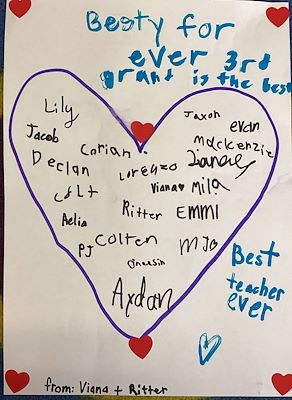 Besty for
ever 3rd
grant is the best
Lily
Jaxon
evan
Jacob
Corian
mackenzie
Declan
Lorenzo
Vianav
Mila
Colt
Ritter
EMMI
Aelia
PJ
Colten
MJo
Axdan
Best
teacher
ever
from: Viana + Ritter